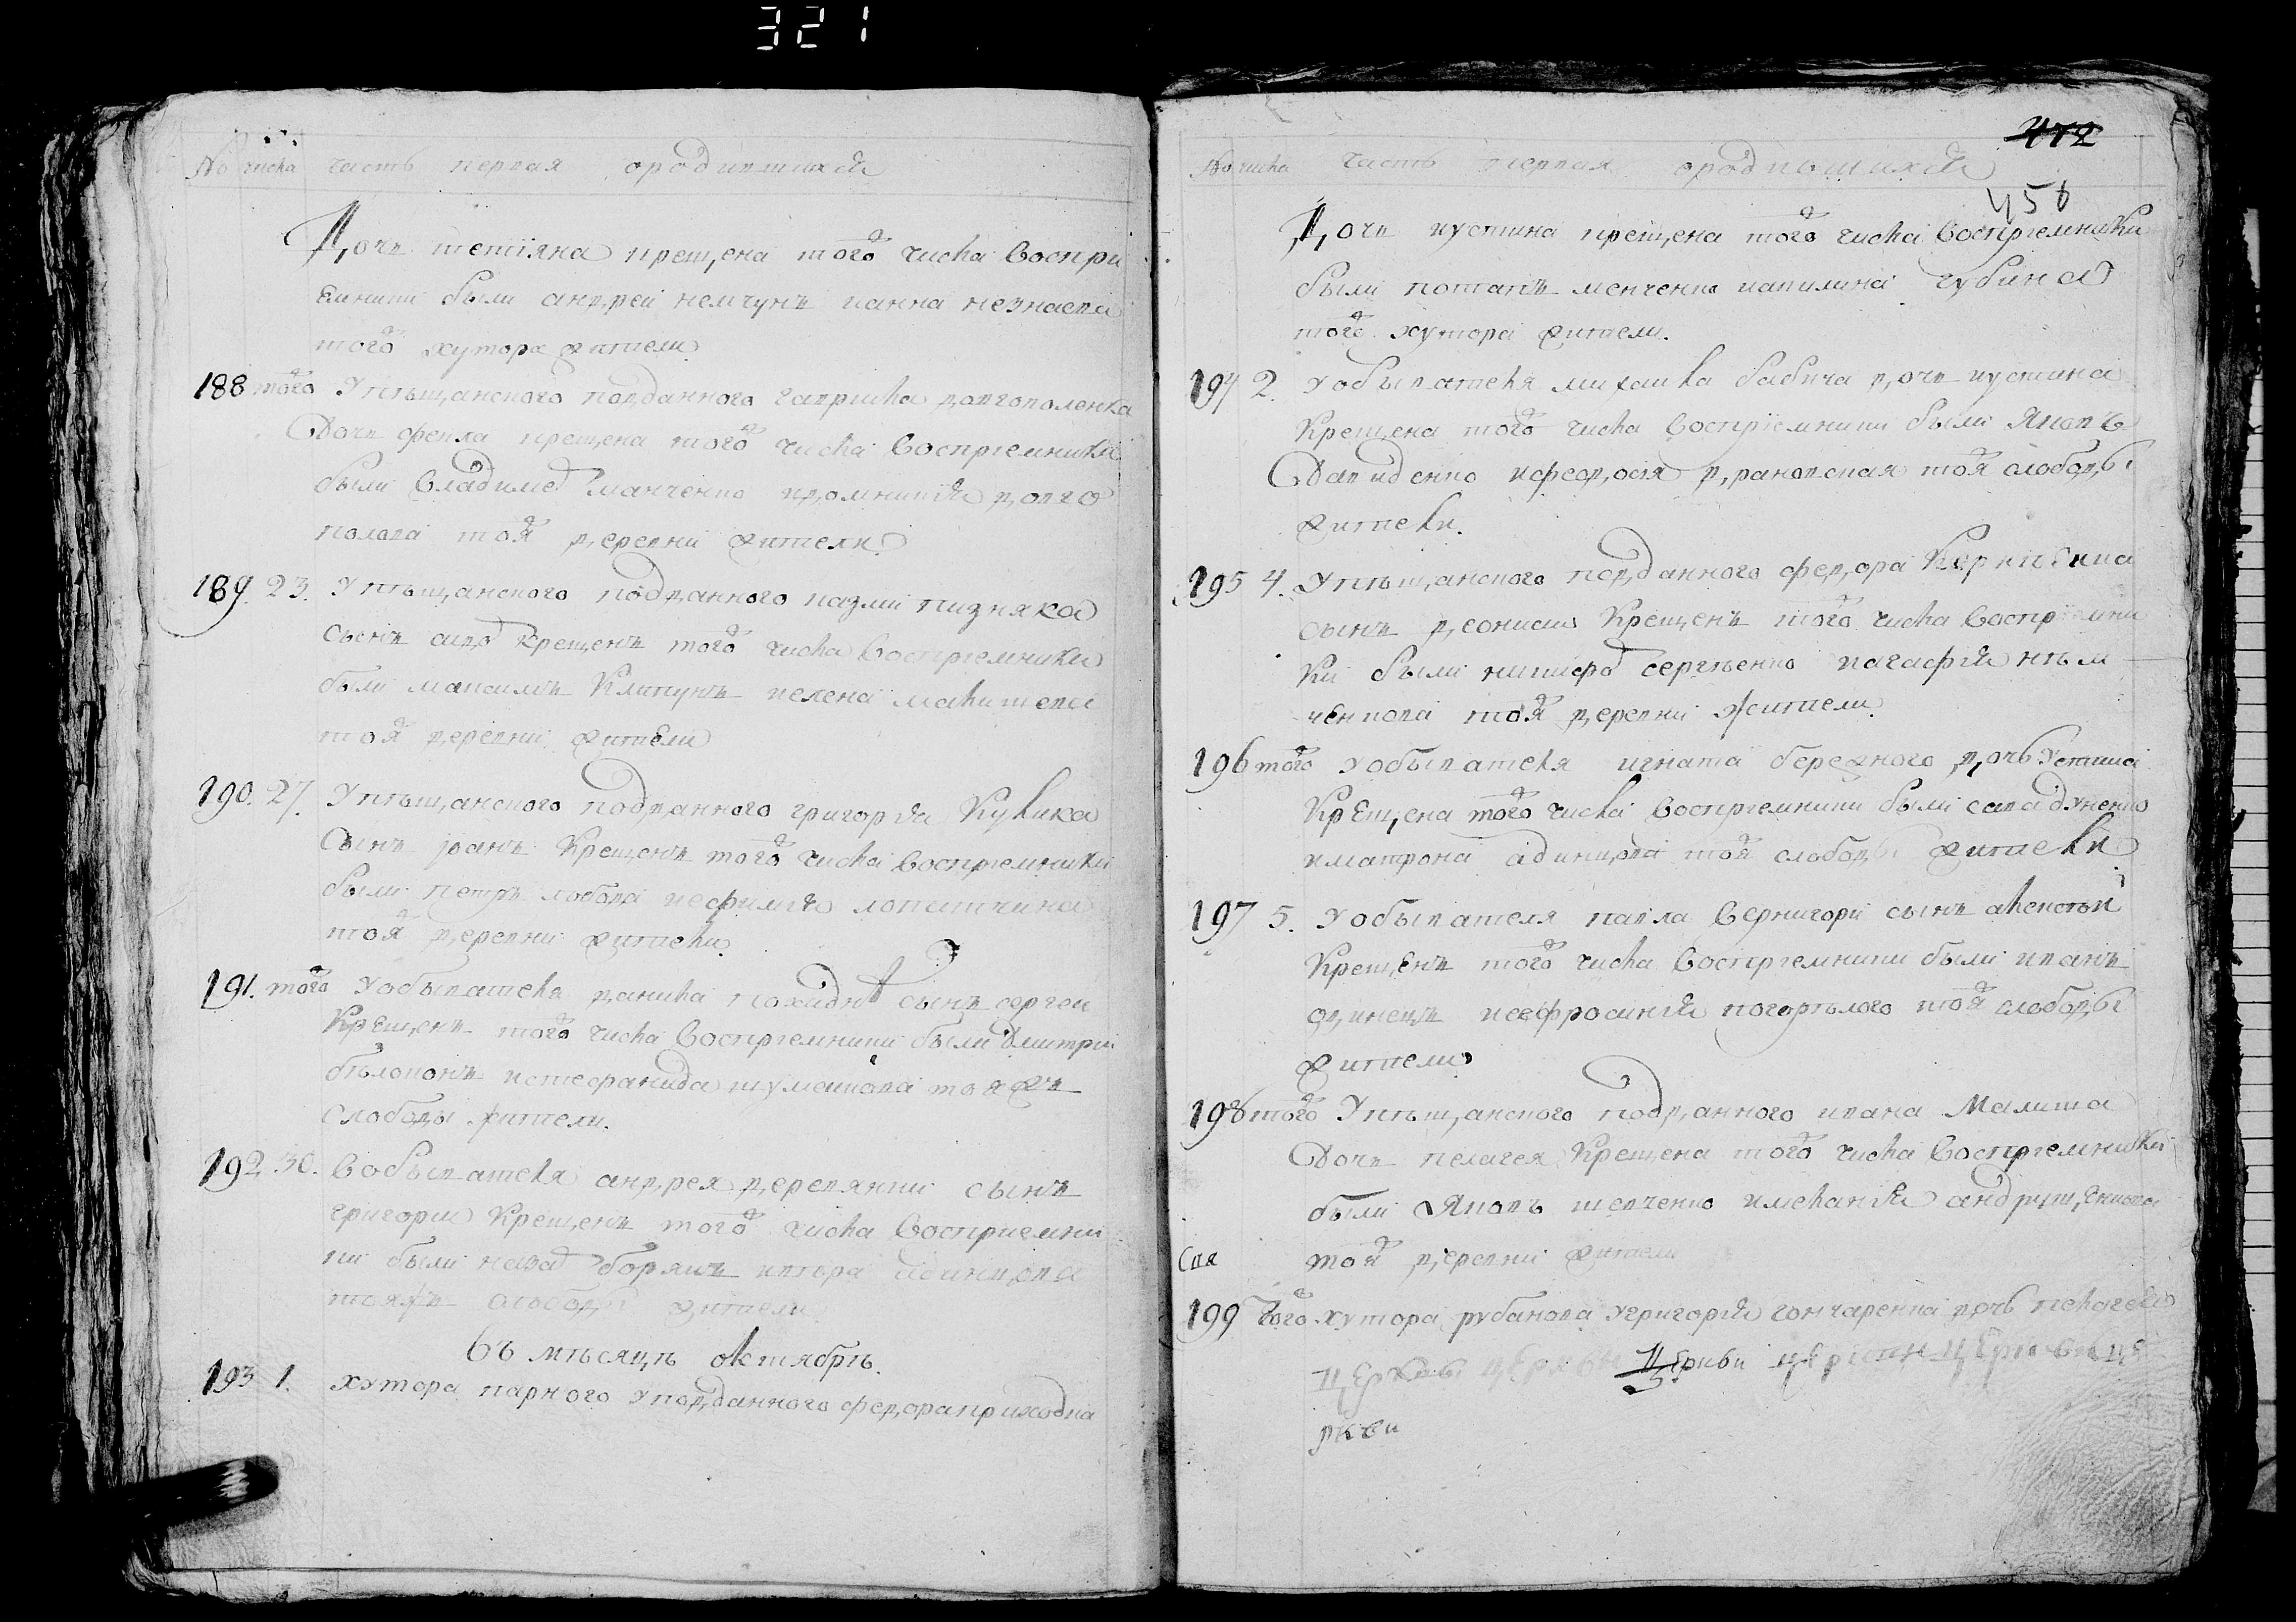 321
No числа часть первая о родившихся
Дочь тетіяна крещена того числа воспри
емники были андрей немчунъ ианна незнаева
того хутора жители
188 того У пѣщанского подданного гаврила долгополенка
Дочь фекла крещена того числа воспріемники
были владимѣ манченко идомникія долго
полова тоя деревни жители
189. 23. У пѣщанского подданного казми пизняка
сынъ сидо крещенъ того числа воспріемники
были максимъ клипунъ иелена
тоя деревни жители
190. 27. У пѣщанского подданного григорія Кулика
Сынъ іванъ крещенъ того числа воспріемники
были петръ лобова иефимія лопатчина
тоя деревни жители
191. того У обывателя данила сынъ сергей
крещенъ того числа воспріемники были Дмитрий
бѣлоконъ истефанида шумейкова тоя жъ
слободы жители.
192 30. У обывателя андрея деревянки сынъ
григорий крещенъ того числа воспріемни
ки были назад борякъ
тояжъ слободы жители
въ мѣсяцѣ октябрѣ.
193 1. хутора парного У подданного федора приходка
No числа часть первая о родившихся
472
458
Дочь иустина крещена того числа воспріемники
были потапъ менченко иакилина губина
того хутора жители.
194 2. У обывателя михаила бабича дочь иустина
крещена того числа воспріемники были Яковъ
Давиденко ифеодосія драновская тоя слободы
жители.
195 4. У пѣщанского подданного федора
сынъ деонисий крещенъ того числа воспріемни
ки были никифор сергѣенко иагафія нѣм
ченкова тоя деревни жители
196 того У обывателя игната бережного дочь Устина
крещена того числа воспріемники были сава дуненко
иматрона адинцова тоя слободы жители
197 5. У обывателя павла Вернигори сынъ алексѣй
крещенъ того числа воспріемники были иванъ
одинецъ иефросинія погорѣлого тоя слободы
жители
198 того У пѣщанского подданного ивана Малиша
Дочь пелагея крещена того числа воспріемники
были Яковъ шевченко имеланія андрущенкова
тоя деревни жители
199 того хутора рубанова У григорія гончаренка дочь пелагея
церкви церкви церкви церкви церкви це
ркви